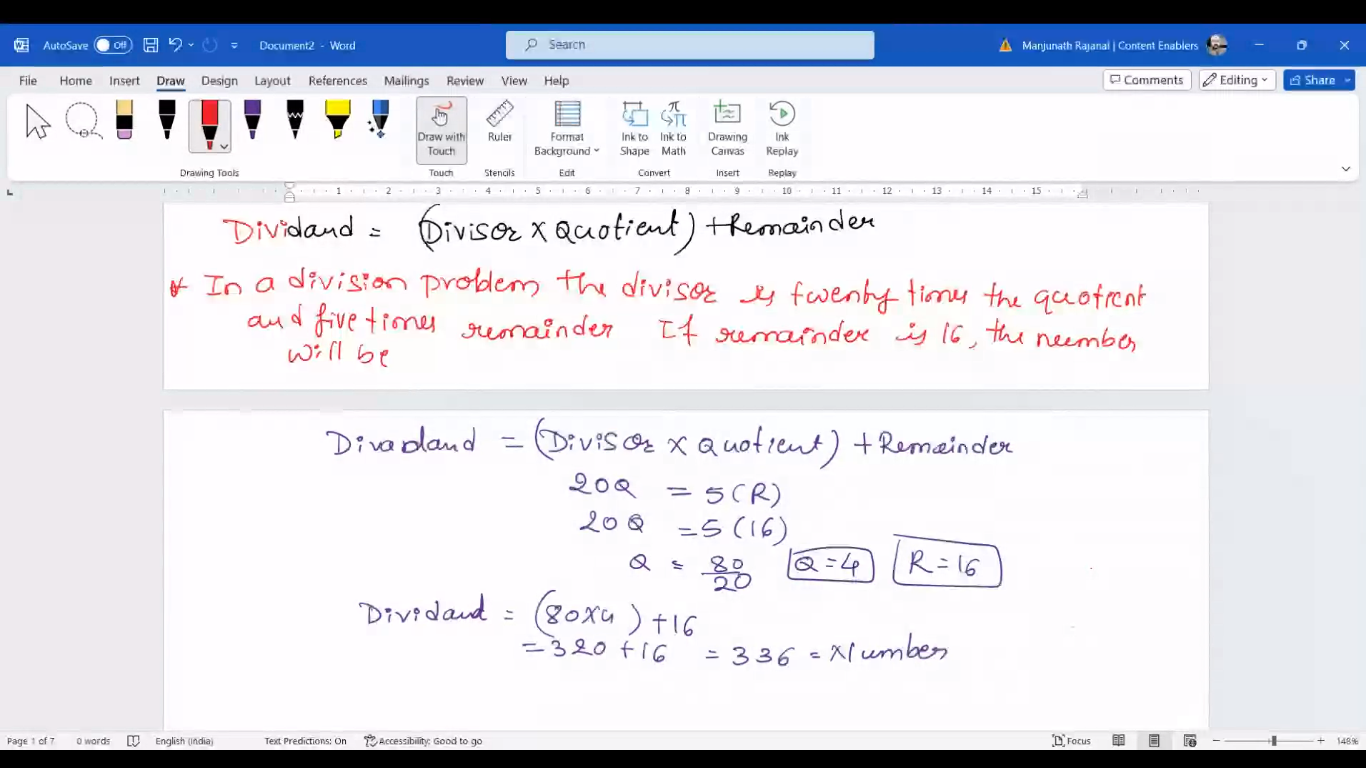 AutoSave Off Document2 - Word Search Manjunath Rajanal | Content Enablers
File Home Insert Draw Design Layout References Mailings Review View Help Comments Editing Share
Draw with Touch Ruler Format Background Ink to Shape Ink to Math Drawing Canvas Ink Replay
Drawing Tools Touch Stencils Edit Convert Insert Replay
1 2 3 4 5 6 7 8 9 10 11 12 13 14 15
Dividand = (Divisor X Quotient) + Remainder
* In a division problem the divisor is twenty times the quotient
and five times remainder If remainder is 16, the number
will be
Dividand = (Divisor X Quotient) + Remainder
20Q = 5(R)
20Q = 5(16)
Q = 80/20 Q = 4 R = 16
Dividand = (80X4) + 16
= 320 + 16 = 336 = Number
Page 1 of 7 0 words English (India) Text Predictions: On Accessibility: Good to go Focus 148%